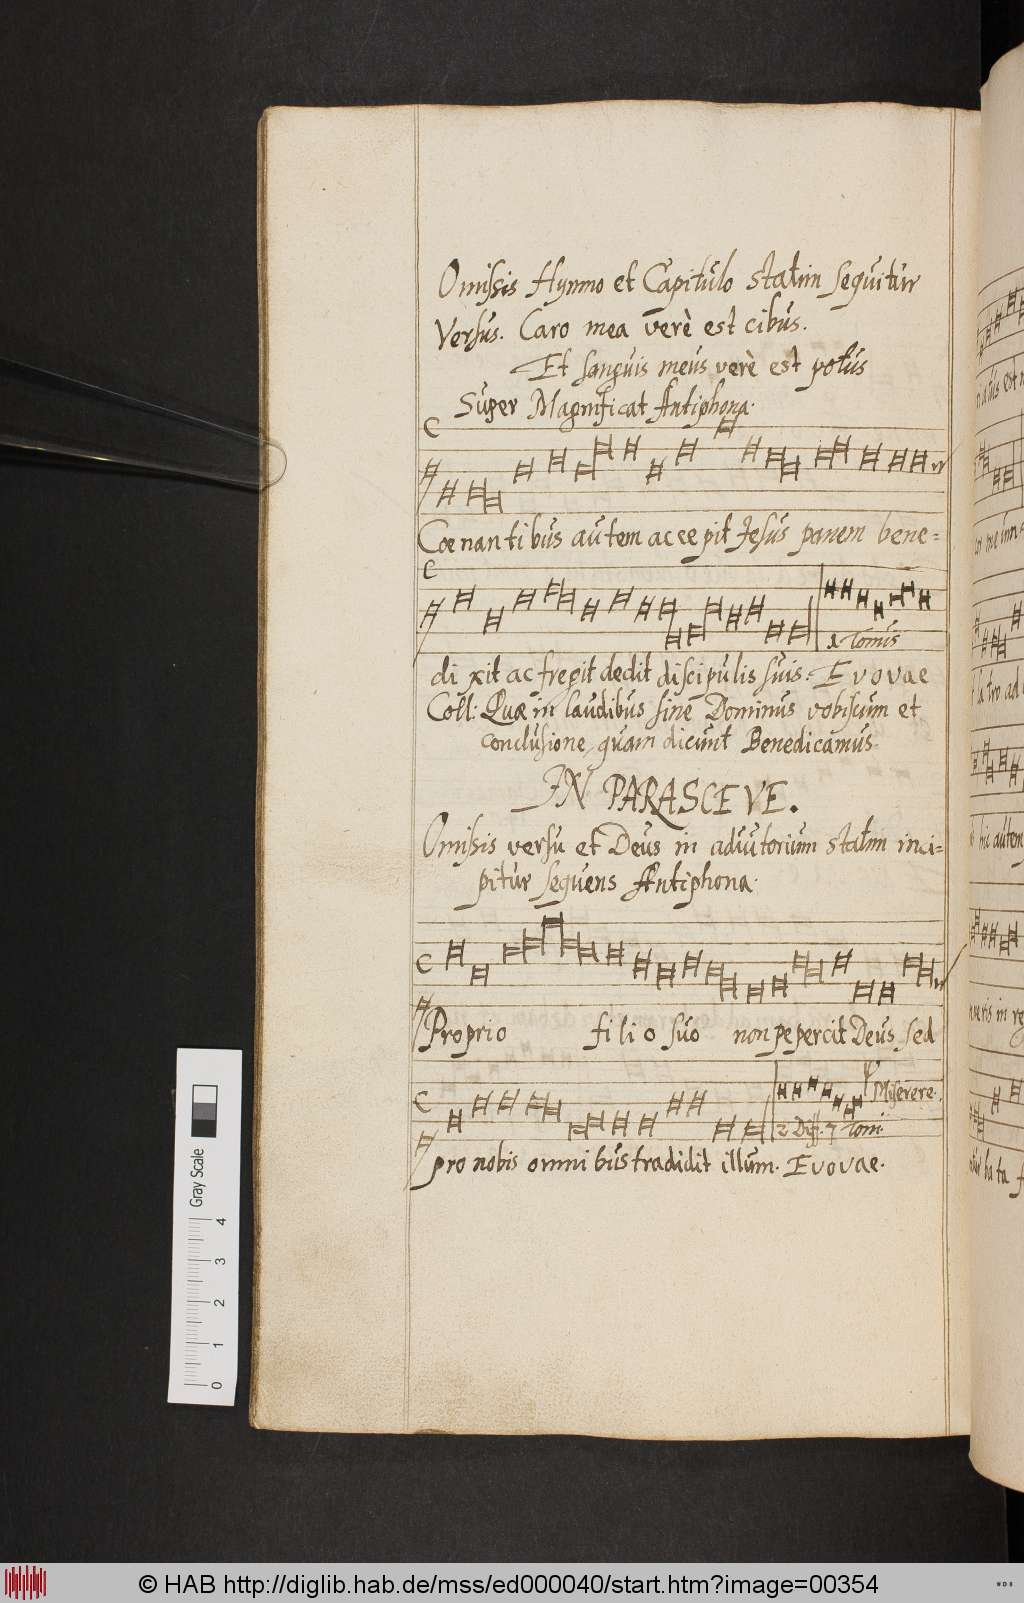 Omissis Hymno et Capitulo statim sequitur
Versus. Caro mea verè est cibus.
Et sanguis meus verè est potus
Super Magnificat Antiphona.
Coenantibus autem accepit Jesus panem bene=
dixit ac fregit dedit discipulis suis. Evovae
1 Tomus
Coll: Quae in laudibus sine Dominus vobiscum et
conclusione, quam dicunt Benedicamus.
IN PARASCEVE.
Omissis versu et Deus in adiutorium statim inci=
pitur sequens Antiphona.
Proprio filio suo non pepercit Deus sed
Miserere.
2 Diff. 7 Toni.
pro nobis omnibus tradidit illum. Evovae.
Gray Scale
4
3
2
1
0
© HAB http://diglib.hab.de/mss/ed000040/start.htm?image=00354